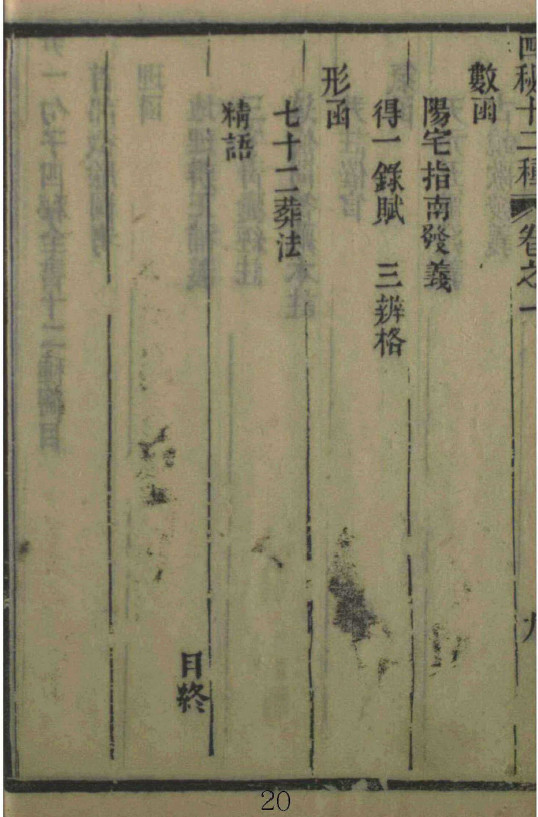 四秘十二種 卷之一 九
數函
陽宅指南發義
得一錄賦 三辨格
形函
七十二葬法
精語
目終
20